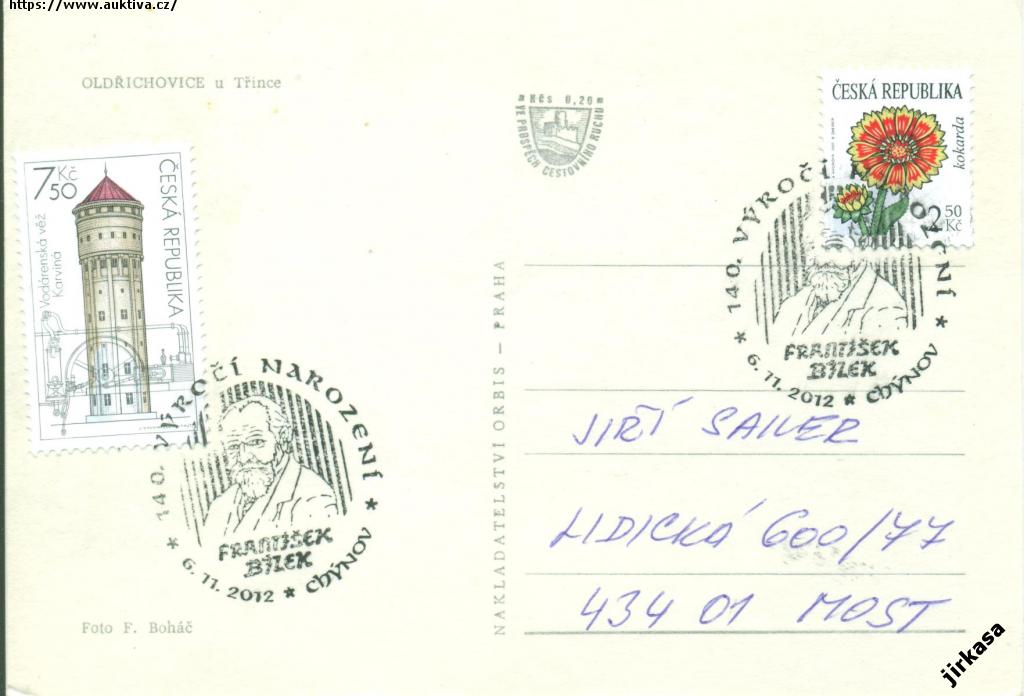 https://www.auktiva.cz/
OLDŘICHOVICE u Třince
Kčs 0,20
VE PROSPĚCH CESTOVNÍHO RUCHU
ČESKÁ REPUBLIKA
kokarda
2 50 Kč
7 50 Kč
ČESKÁ REPUBLIKA
Vodárenská věž
Karviná
140. VÝROČÍ NAROZENÍ
FRANTIŠEK
BÍLEK
* 6. 11. 2012 * CHÝNOV *
140. VÝROČÍ
FRANTIŠEK
BÍLEK
* 6. 11. 2012 * CHÝNOV *
NAKLADATELSTVÍ ORBIS – PRAHA
JIŘÍ SAILER
LIDICKÁ 600/77
434 01 MOST
Foto F. Boháč
jirkasa